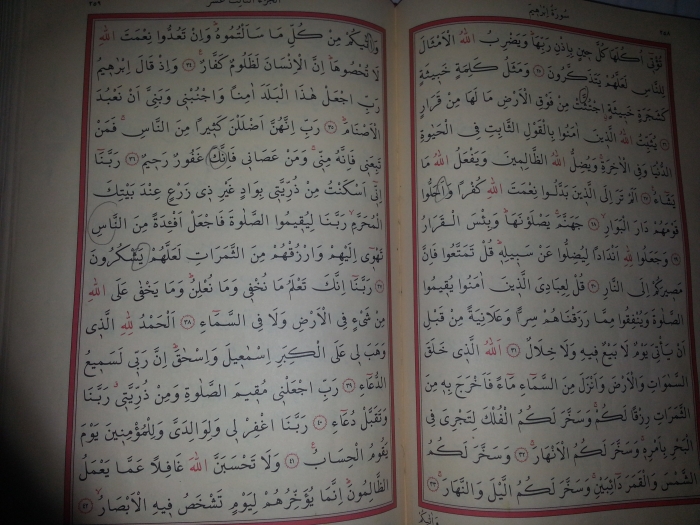 سورة إبرهيم
٢٥٨
تُؤْتٖٓى اُكُلَهَا كُلَّ حٖينٍ بِاِذْنِ رَبِّهَاۜ وَيَضْرِبُ اللّٰهُ الْاَمْثَالَ
لِلنَّاسِ لَعَلَّهُمْ يَتَذَكَّرُونَ ٢٥ وَمَثَلُ كَلِمَةٍ خَبٖيثَةٍ
كَشَجَرَةٍ خَبٖيثَةٍۨ اجْتُثَّتْ مِنْ فَوْقِ الْاَرْضِ مَا لَهَا مِنْ قَرَارٍ
٢٦ يُثَبِّتُ اللّٰهُ الَّذٖينَ اٰمَنُوا بِالْقَوْلِ الثَّابِتِ فِى الْحَيٰوةِ
الدُّنْيَا وَفِى الْاٰخِرَةِۚ وَيُضِلُّ اللّٰهُ الظَّالِمٖينَ وَيَفْعَلُ اللّٰهُ مَا
يَشَٓاءُ ٢٧ اَلَمْ تَرَ اِلَى الَّذٖينَ بَدَّلُوا نِعْمَتَ اللّٰهِ كُفْرًا وَاَحَلُّوا
قَوْمَهُمْ دَارَ الْبَوَارِۙ ٢٨ جَهَنَّمَۚ يَصْلَوْنَهَاۜ وَبِئْسَ الْقَرَارُ
٢٩ وَجَعَلُوا لِلّٰهِ اَنْدَادًا لِيُضِلُّوا عَنْ سَبٖيلِهٖۜ قُلْ تَمَتَّعُوا فَاِنَّ
مَصٖيرَكُمْ اِلَى النَّارِ ٣٠ قُلْ لِعِبَادِىَ الَّذٖينَ اٰمَنُوا يُقٖيمُوا
الصَّلٰوةَ وَيُنْفِقُوا مِمَّا رَزَقْنَاهُمْ سِرًّا وَعَلَانِيَةً مِنْ قَبْلِ
اَنْ يَاْتِىَ يَوْمٌ لَا بَيْعٌ فٖيهِ وَلَا خِلَالٌ ٣١ اَللّٰهُ الَّذٖى خَلَقَ
السَّمٰوَاتِ وَالْاَرْضَ وَاَنْزَلَ مِنَ السَّمَٓاءِ مَٓاءً فَاَخْرَجَ بِهٖ مِنَ
الثَّمَرَاتِ رِزْقًا لَكُمْۚ وَسَخَّرَ لَكُمُ الْفُلْكَ لِتَجْرِىَ فِى
الْبَحْرِ بِاَمْرِهٖۚ وَسَخَّرَ لَكُمُ الْاَنْهَارَۚ ٣٢ وَسَخَّرَ لَكُمُ
الشَّمْسَ وَالْقَمَرَ دَٓائِبَيْنِۚ وَسَخَّرَ لَكُمُ الَّيْلَ وَالنَّهَارَۚ ٣٣
وَاٰتٰيكُمْ
الجزء الثالث عشر
٢٥٩
وَاٰتٰيكُمْ مِنْ كُلِّ مَا سَاَلْتُمُوهُۜ وَاِنْ تَعُدُّوا نِعْمَتَ اللّٰهِ
لَا تُحْصُوهَاۜ اِنَّ الْاِنْسَانَ لَظَلُومٌ كَفَّارٌ۟ ٣٤ وَاِذْ قَالَ اِبْرٰهٖيمُ
رَبِّ اجْعَلْ هٰذَا الْبَلَدَ اٰمِنًا وَاجْنُبْنٖى وَبَنِىَّ اَنْ نَعْبُدَ
الْاَصْنَامَۜ ٣٥ رَبِّ اِنَّهُنَّ اَضْلَلْنَ كَثٖيرًا مِنَ النَّاسِۚ فَمَنْ
تَبِعَنٖى فَاِنَّهُ مِنّٖىۚ وَمَنْ عَصَانٖى فَاِنَّكَ غَفُورٌ رَحٖيمٌ ٣٦ رَبَّنَٓا
اِنّٖٓى اَسْكَنْتُ مِنْ ذُرِّيَّتٖى بِوَادٍ غَيْرِ ذٖى زَرْعٍ عِنْدَ بَيْتِكَ
الْمُحَرَّمِۙ رَبَّنَا لِيُقٖيمُوا الصَّلٰوةَ فَاجْعَلْ اَفْئِدَةً مِنَ النَّاسِ
تَهْوٖٓى اِلَيْهِمْ وَارْزُقْهُمْ مِنَ الثَّمَرَاتِ لَعَلَّهُمْ يَشْكُرُونَ
٣٧ رَبَّنَٓا اِنَّكَ تَعْلَمُ مَا نُخْفٖى وَمَا نُعْلِنُۜ وَمَا يَخْفٰى عَلَى اللّٰهِ
مِنْ شَیْءٍ فِى الْاَرْضِ وَلَا فِى السَّمَٓاءِ ٣٨ اَلْحَمْدُ لِلّٰهِ الَّذٖى
وَهَبَ لٖى عَلَى الْكِبَرِ اِسْمٰعٖيلَ وَاِسْحٰقَۜ اِنَّ رَبّٖى لَسَمٖيعُ
الدُّعَٓاءِ ٣٩ رَبِّ اجْعَلْنٖى مُقٖيمَ الصَّلٰوةِ وَمِنْ ذُرِّيَّتٖىۗ رَبَّنَا
وَتَقَبَّلْ دُعَٓاءِ ٤٠ رَبَّنَا اغْفِرْ لٖى وَلِوَالِدَىَّ وَلِلْمُؤْمِنٖينَ يَوْمَ
يَقُومُ الْحِسَابُ۟ ٤١ وَلَا تَحْسَبَنَّ اللّٰهَ غَافِلًا عَمَّا يَعْمَلُ
الظَّالِمُونَۜ اِنَّمَا يُؤَخِّرُهُمْ لِيَوْمٍ تَشْخَصُ فٖيهِ الْاَبْصَارُۙ ٤٢